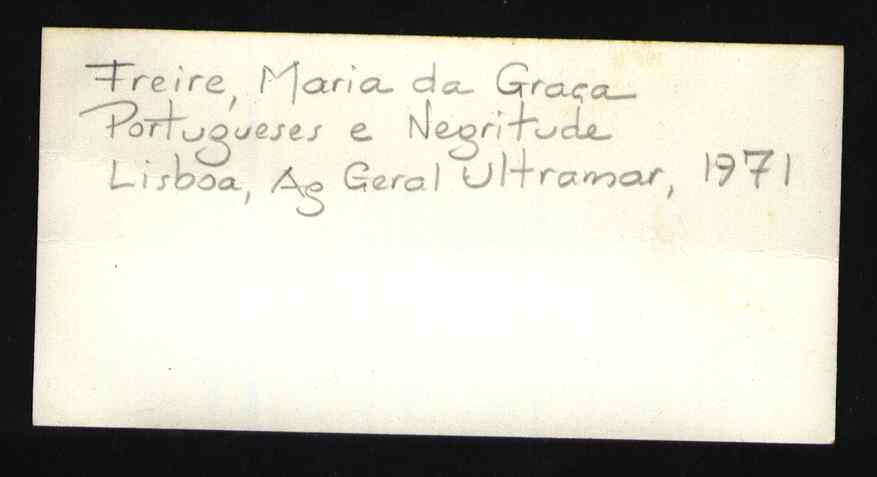 Freire, Maria da Graça
Portugueses e Negritude
Lisboa, Ag Geral Ultramar, 1971